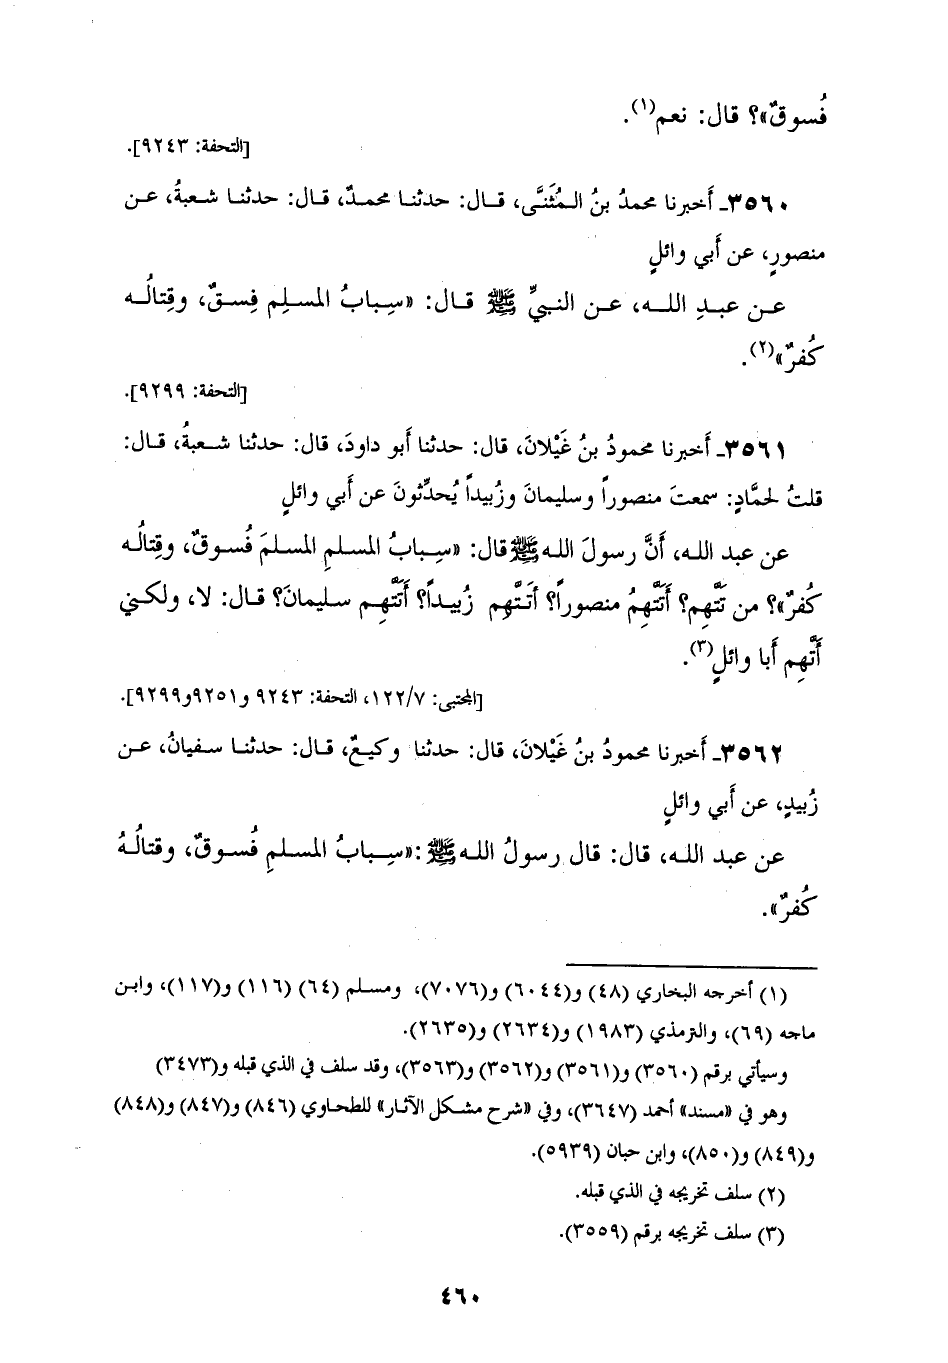 فُسوقٌ»؟ قال: نعم(١).
[التحفة: ٩٢٤٣].
٣٥٦٠ـ أَخبرنا محمدُ بنُ المُثَنَّى، قال: حدثنا محمدٌ، قال: حدثنا شعبةُ، عن
منصورٍ، عن أَبي وائلٍ
عن عبدِ الله، عن النبيِّ ﷺ قال: «سِبابُ المسلِم فِسقٌ، وقِتالُه
كُفرٌ»(٢).
[التحفة: ٩٢٩٩].
٣٥٦١ـ أَخبرنا محمودُ بنُ غَيْلانَ، قال: حدثنا أَبو داودَ، قال: حدثنا شعبةُ، قال:
قلتُ لحمَّادٍ: سمعتَ منصوراً وسليمانَ وزُبيداً يُحدِّثونَ عن أَبي وائلٍ
عن عبد الله، أَنَّ رسولَ الله ﷺ قال: «سِبابُ المسلمِ المسلمَ فُسوقٌ، وقِتالُه
كُفرٌ»؟ من تَتَّهِم؟ أَتَتَّهِمُ منصوراً؟ أَتَتَّهِم زُبيداً؟ أَتَتَّهِم سليمانَ؟ قال: لا، ولكني
أَتَّهِم أَبا وائلٍ(٣).
[المجتبى: ١٢٢/٧، التحفة: ٩٢٤٣ و٩٢٥١و٩٢٩٩].
٣٥٦٢ـ أَخبرنا محمودُ بنُ غَيْلانَ، قال: حدثنا وكيعٌ، قال: حدثنا سفيانُ، عن
زُبيدٍ، عن أَبي وائلٍ
عن عبد الله، قال: قال رسولُ الله ﷺ: «سِبابُ المسلمِ فُسوقٌ، وقتالُهُ
كُفرٌ».
(١) أخرجه البخاري (٤٨) و(٦٠٤٤) و(٧٠٧٦)، ومسلم (٦٤) (١١٦) و(١١٧)، وابن
ماجه (٦٩)، والترمذي (١٩٨٣) و(٢٦٣٤) و(٢٦٣٥).
وسيأتي برقم (٣٥٦٠) و(٣٥٦١) و(٣٥٦٢) و(٣٥٦٣)، وقد سلف في الذي قبله و(٣٤٧٣)
وهو في «مسند» أحمد (٣٦٤٧)، وفي «شرح مشكل الآثار» للطحاوي (٨٤٦) و(٨٤٧) و(٨٤٨)
و(٨٤٩) و(٨٥٠)، وابن حبان (٥٩٣٩).
(٢) سلف تخريجه في الذي قبله.
(٣) سلف تخريجه برقم (٣٥٥٩).
٤٦٠